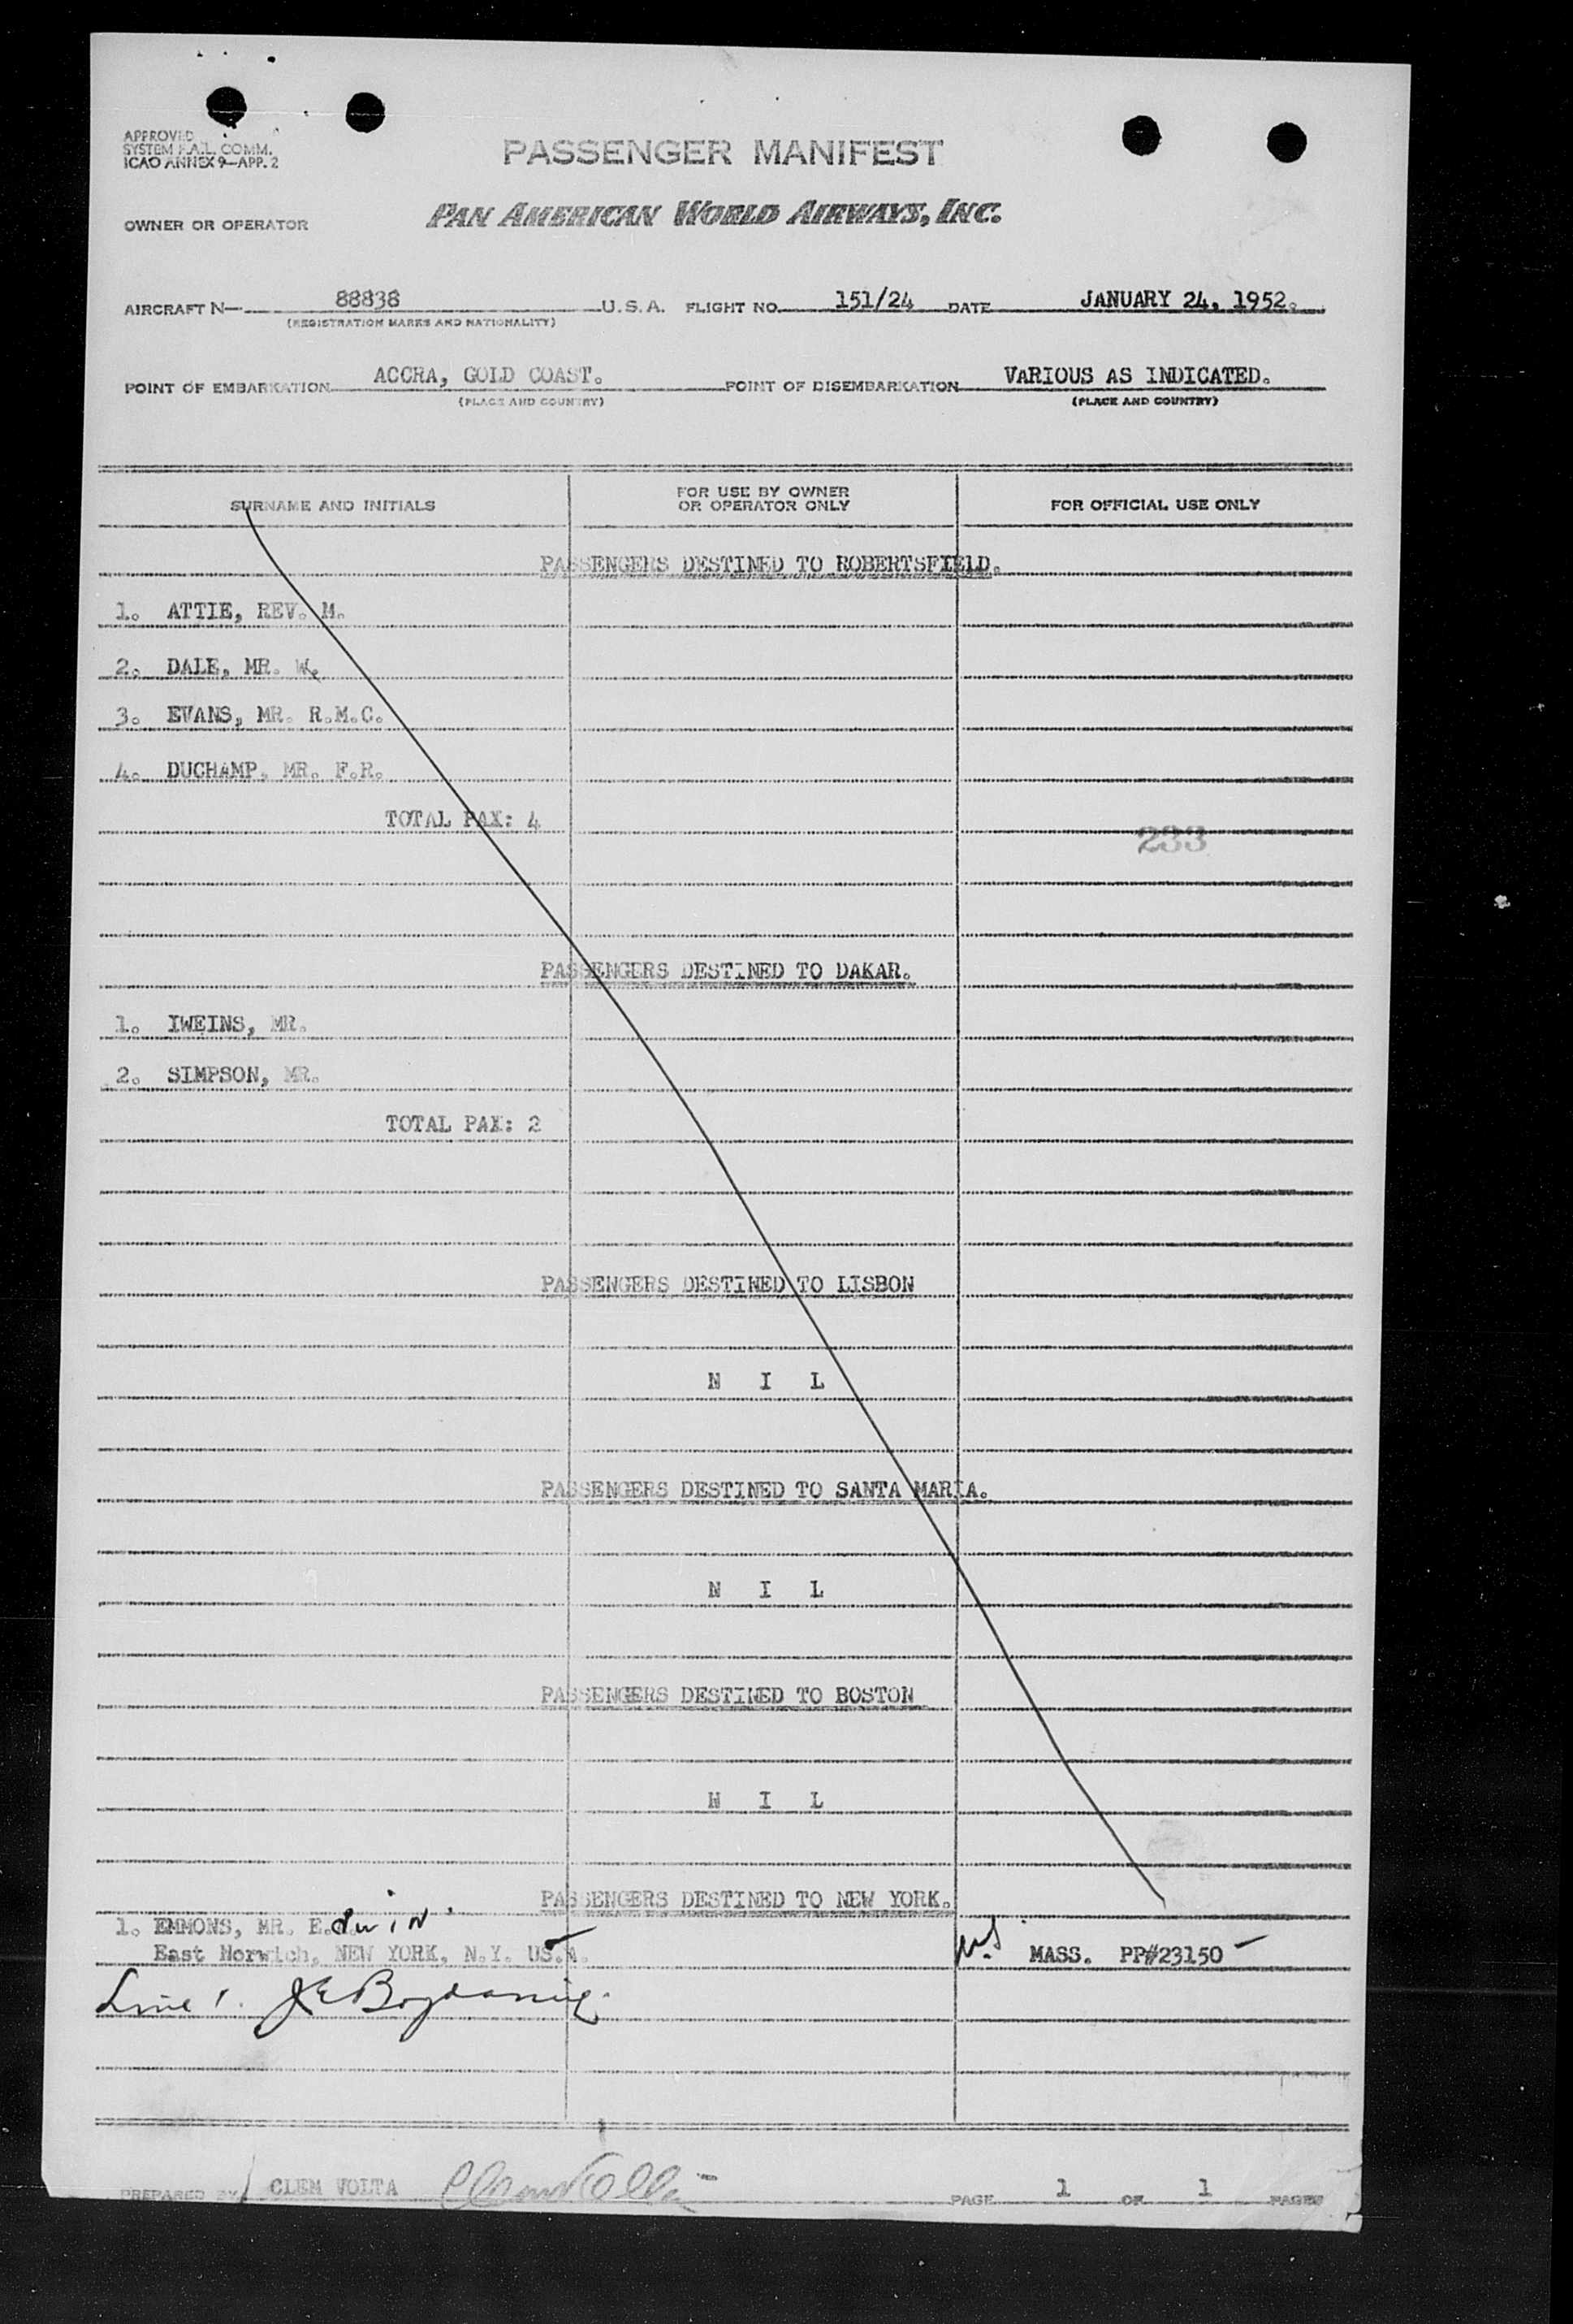 APPROVED
SYSTEM F.A.L. COMM.
ICAO ANNEX 9—APP. 2
PASSENGER MANIFEST
OWNER OR OPERATOR PAN AMERICAN WORLD AIRWAYS, INC.
AIRCRAFT N— 88838 U.S.A. FLIGHT NO. 151/24 DATE JANUARY 24, 1952.
(REGISTRATION MARKS AND NATIONALITY)
POINT OF EMBARKATION ACCRA, GOLD COAST. POINT OF DISEMBARKATION VARIOUS AS INDICATED.
(PLACE AND COUNTRY) (PLACE AND COUNTRY)
SURNAME AND INITIALS FOR USE BY OWNER OR OPERATOR ONLY FOR OFFICIAL USE ONLY
PASSENGERS DESTINED TO ROBERTSFIELD.
1. ATTIE, REV. M.
2. DALE, MR. W.
3. EVANS, MR. R.M.C.
4. DUCHAMP, MR. F.R.
TOTAL PAX: 4
233
PASSENGERS DESTINED TO DAKAR.
1. IWEINS, MR.
2. SIMPSON, MR.
TOTAL PAX: 2
PASSENGERS DESTINED TO LISBON
N I L
PASSENGERS DESTINED TO SANTA MARIA.
N I L
PASSENGERS DESTINED TO BOSTON
N I L
PASSENGERS DESTINED TO NEW YORK.
1. EMMONS, MR. E.dwin.
East Norwich, NEW YORK, N.Y. US.A. MASS. PP#23150
Line 1.
PREPARED BY CLEM VOLTA PAGE 1 OF 1 PAGES